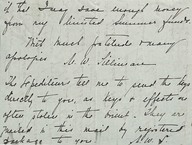 if the I may save enough money
from my limited summer funds.
With much gratitude & many
apologies M. W. Stillman
The Expeditors tell me to send the keys
directly to you, as keys & effects are
often stolen in the trunk. They are
packed in this mail by registered
package to you. M. W. S.